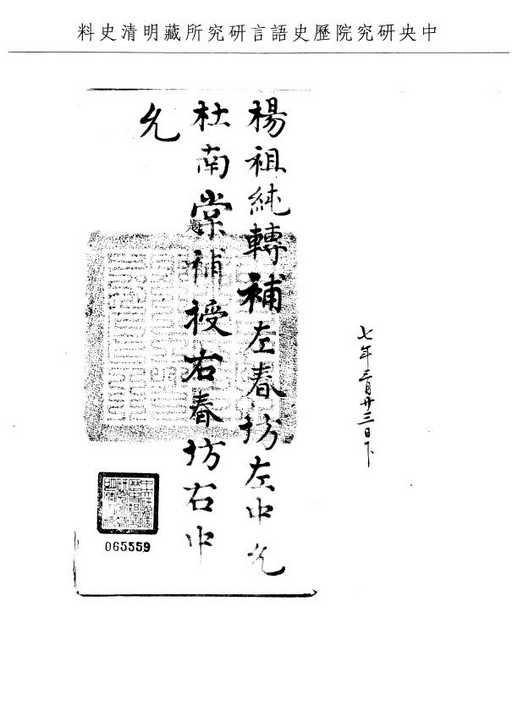 中央研究院歷史語言研究所藏明清史料
七年三月廿三日下
楊祖純轉補左春坊左中允
杜南棠補授右春坊右中
允
065559